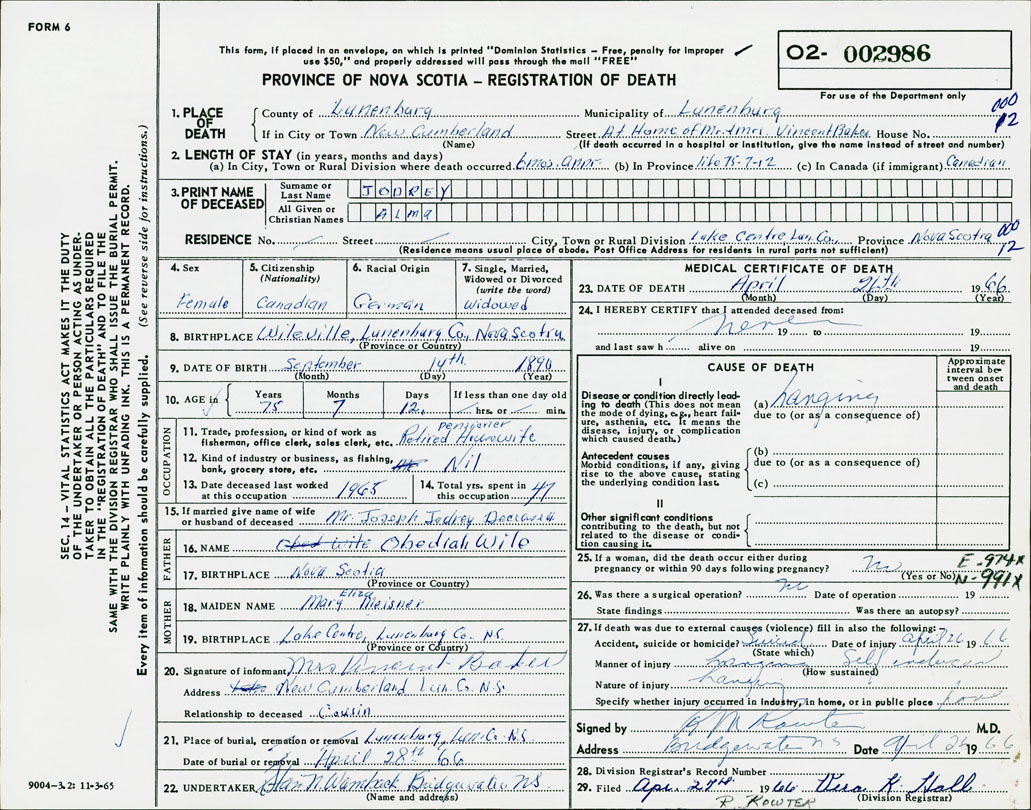 FORM 6
This form, if placed in an envelope, on which is printed "Dominion Statistics – Free, penalty for improper
use $50," and properly addressed will pass through the mail "FREE"
02- 002986
For use of the Department only
PROVINCE OF NOVA SCOTIA – REGISTRATION OF DEATH
1. PLACE OF DEATH
County of Lunenburg Municipality of Lunenburg
000
12
If in City or Town New Cumberland Street At Home of Mr. & Mrs. Vincent Baker House No.
(Name) (If death occurred in a hospital or institution, give the name instead of street and number)
2. LENGTH OF STAY (in years, months and days)
(a) In City, Town or Rural Division where death occurred 6 mos. appr. (b) In Province life 75-7-12 (c) In Canada (if immigrant) Canadian
3. PRINT NAME OF DECEASED
Surname or Last Name JODREY
All Given or Christian Names Alma
RESIDENCE No. Street City, Town or Rural Division Lake Centre Lun. Co., Province Nova Scotia
000
12
(Residence means usual place of abode. Post Office Address for residents in rural parts not sufficient)
4. Sex Female
5. Citizenship (Nationality) Canadian
6. Racial Origin German
7. Single, Married, Widowed or Divorced (write the word) Widowed
8. BIRTHPLACE Wileville, Lunenburg Co., Nova Scotia
(Province or Country)
9. DATE OF BIRTH September 14th 1890
(Month) (Day) (Year)
10. AGE in Years 75 Months 7 Days 12 If less than one day old hrs. or min.
OCCUPATION
11. Trade, profession, or kind of work as fisherman, office clerk, sales clerk, etc. pensioner Retired Housewife
12. Kind of industry or business, as fishing, bank, grocery store, etc. Nil
13. Date deceased last worked at this occupation 1965
14. Total yrs. spent in this occupation 47
15. If married give name of wife or husband of deceased Mr. Joseph Jodrey Deceased
FATHER
16. NAME Obed Wile Obediah Wile
17. BIRTHPLACE Nova Scotia
(Province or Country)
MOTHER
18. MAIDEN NAME Mary Eliza Meisner
19. BIRTHPLACE Lake Centre, Lunenburg Co. NS
(Province or Country)
20. Signature of informant Mrs Vincent Baker
Address New Cumberland Lun. Co. N.S.
Relationship to deceased Cousin
21. Place of burial, cremation or removal Lunenburg, Lun. Co. N.S.
Date of burial or removal April 28th 66
22. UNDERTAKER Bridgewater NS
(Name and address)
MEDICAL CERTIFICATE OF DEATH
23. DATE OF DEATH April 26th 1966
(Month) (Day) (Year)
24. I HEREBY CERTIFY that I attended deceased from:
never 19 to 19
and last saw h alive on 19
CAUSE OF DEATH
Approximate interval between onset and death
I
Disease or condition directly leading to death (This does not mean the mode of dying, e.g., heart failure, asthenia, etc. It means the disease, injury, or complication which caused death.)
(a) hanging
due to (or as a consequence of)
Antecedent causes
Morbid conditions, if any, giving rise to the above cause, stating the underlying condition last.
(b)
due to (or as a consequence of)
(c)
II
Other significant conditions contributing to the death, but not related to the disease or condition causing it.
25. If a woman, did the death occur either during pregnancy or within 90 days following pregnancy? no
(Yes or No)
E-974X
N-991X
26. Was there a surgical operation? no Date of operation 19
State findings Was there an autopsy?
27. If death was due to external causes (violence) fill in also the following:–
Accident, suicide or homicide? Suicid Date of injury april 26 1966
(State which)
Manner of injury hanging Self
(How sustained)
Nature of injury hanging
Specify whether injury occurred in Industry, in home, or in public place home
Signed by M.D.
Address Bridgewater NS Date April 26 1966
28. Division Registrar's Record Number
29. Filed Apr. 27th 1966 Vera K. Hall
R. KOWTER
(Division Registrar)
SEC. 14 – VITAL STATISTICS ACT MAKES IT THE DUTY
OF THE UNDERTAKER OR PERSON ACTING AS UNDER-
TAKER TO OBTAIN ALL THE PARTICULARS REQUIRED
IN THE "REGISTRATION OF DEATH" AND TO FILE THE
SAME WITH THE DIVISION REGISTRAR WHO SHALL ISSUE THE BURIAL PERMIT.
WRITE PLAINLY WITH UNFADING INK. THIS IS A PERMANENT RECORD.
Every item of information should be carefully supplied. (See reverse side for instructions.)
9004-3.2: 11-3-65